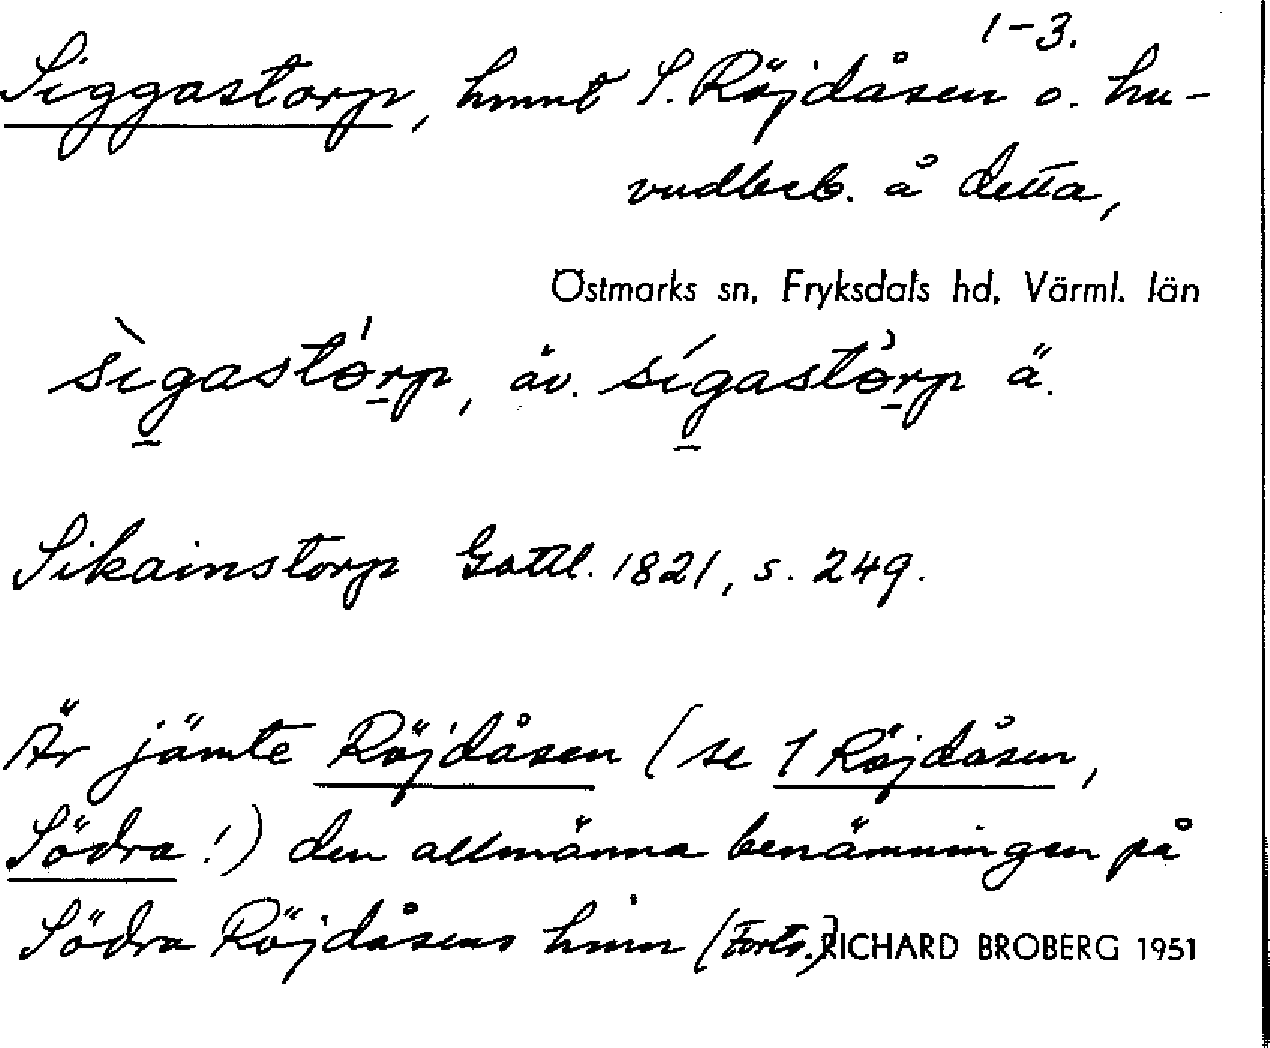 1-3.
Siggastorp, hmnt S. Röjdåsen o. hu-
vudbeb. å detta,
Östmarks sn, Fryksdals hd, Värml. län
sìgastórp, äv. sígastòrp ä.
Sikainstorp Gottl. 1821, s. 249.
Är jämte Röjdåsen (se 1 Röjdåsen,
Södra!) den allmänna benämningen på
Södra Röjdåsens hmn (Forts.) RICHARD BROBERG 1951